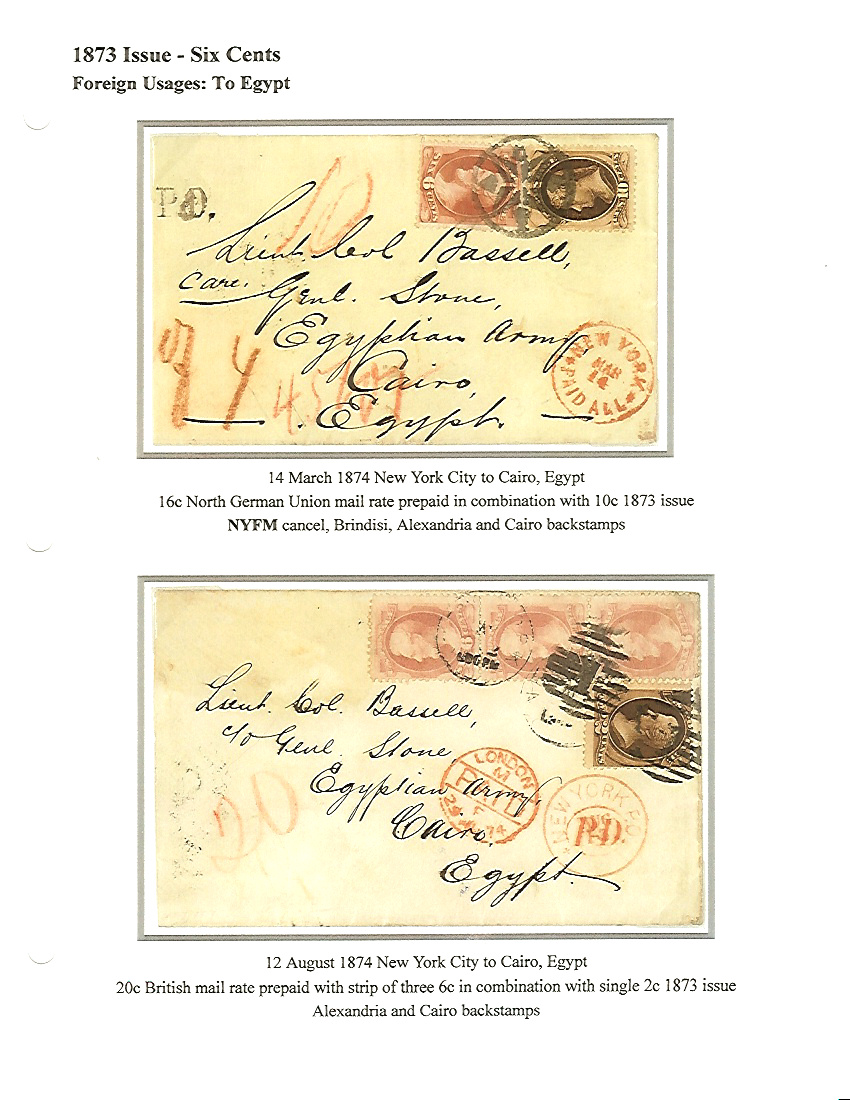 1873 Issue - Six Cents
Foreign Usages: To Egypt
P.D.
10
Lieut. Col Bassell,
Care. Genl. Stone,
Egyptian Army,
Cairo,
Egypt.
4
NEW YORK
MAR
14
PAID ALL
14 March 1874 New York City to Cairo, Egypt
16c North German Union mail rate prepaid in combination with 10c 1873 issue
NYFM cancel, Brindisi, Alexandria and Cairo backstamps
Lieut. Col. Bassell,
c/o Genl. Stone,
Egyptian Army,
Cairo,
Egypt.
20
LONDON
M
PAID
74
NEW YORK
P.D.
12 August 1874 New York City to Cairo, Egypt
20c British mail rate prepaid with strip of three 6c in combination with single 2c 1873 issue
Alexandria and Cairo backstamps